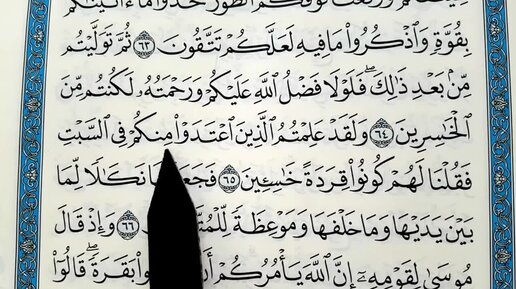 بِقُوَّةٍ وَاذْكُرُوا مَا فِيهِ لَعَلَّكُمْ تَتَّقُونَ ٦٣ ثُمَّ تَوَلَّيْتُم
مِّنۢ بَعْدِ ذَٰلِكَۖ فَلَوْلَا فَضْلُ اللَّهِ عَلَيْكُمْ وَرَحْمَتُهُۥ لَكُنتُم مِّنَ
الْخَاسِرِينَ ٦٤ وَلَقَدْ عَلِمْتُمُ الَّذِينَ اعْتَدَوْا مِنكُمْ فِي السَّبْتِ
فَقُلْنَا لَهُمْ كُونُوا قِرَدَةً خَاسِئِينَ ٦٥ نَكَالًا لِّمَا
بَيْنَ يَدَيْهَا وَمَا خَلْفَهَا وَمَوْعِظَةً ٦٦ وَإِذْ قَالَ
مُوسَىٰ لِقَوْمِهِۦٓ إِنَّ اللَّهَ يَأْمُرُكُمْ بَقَرَةًۖ قَالُوٓا